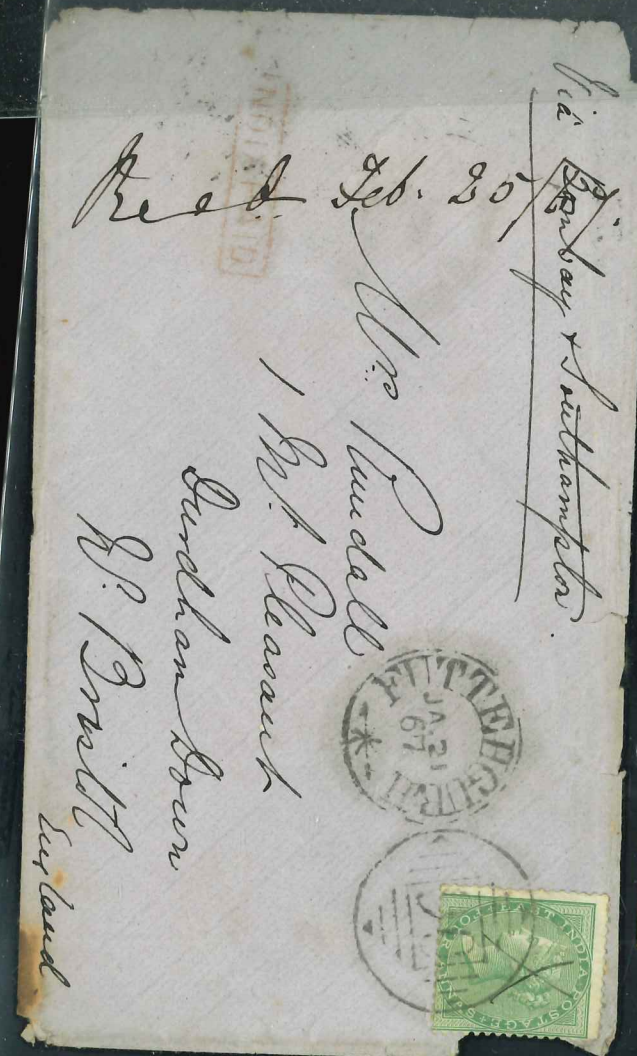 Viâ Bombay & Southampton.
Recd. Feb. 25/67.
INDIA PAID
Mrs. Rundall
1 Mt. Pleasant
Durdham Down
Nr. Bristol
England
FUTTEHGURH
JA. 21
67
EAST INDIA POSTAGE